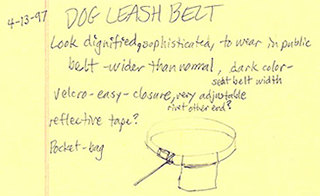 4-13-97 DOG LEASH BELT
Look dignified, sophisticated, to wear in public
belt - wider than normal, dark color-
seat belt width
velcro-easy-closure, very adjustable
rivet other end?
reflective tape?
Pocket-bag